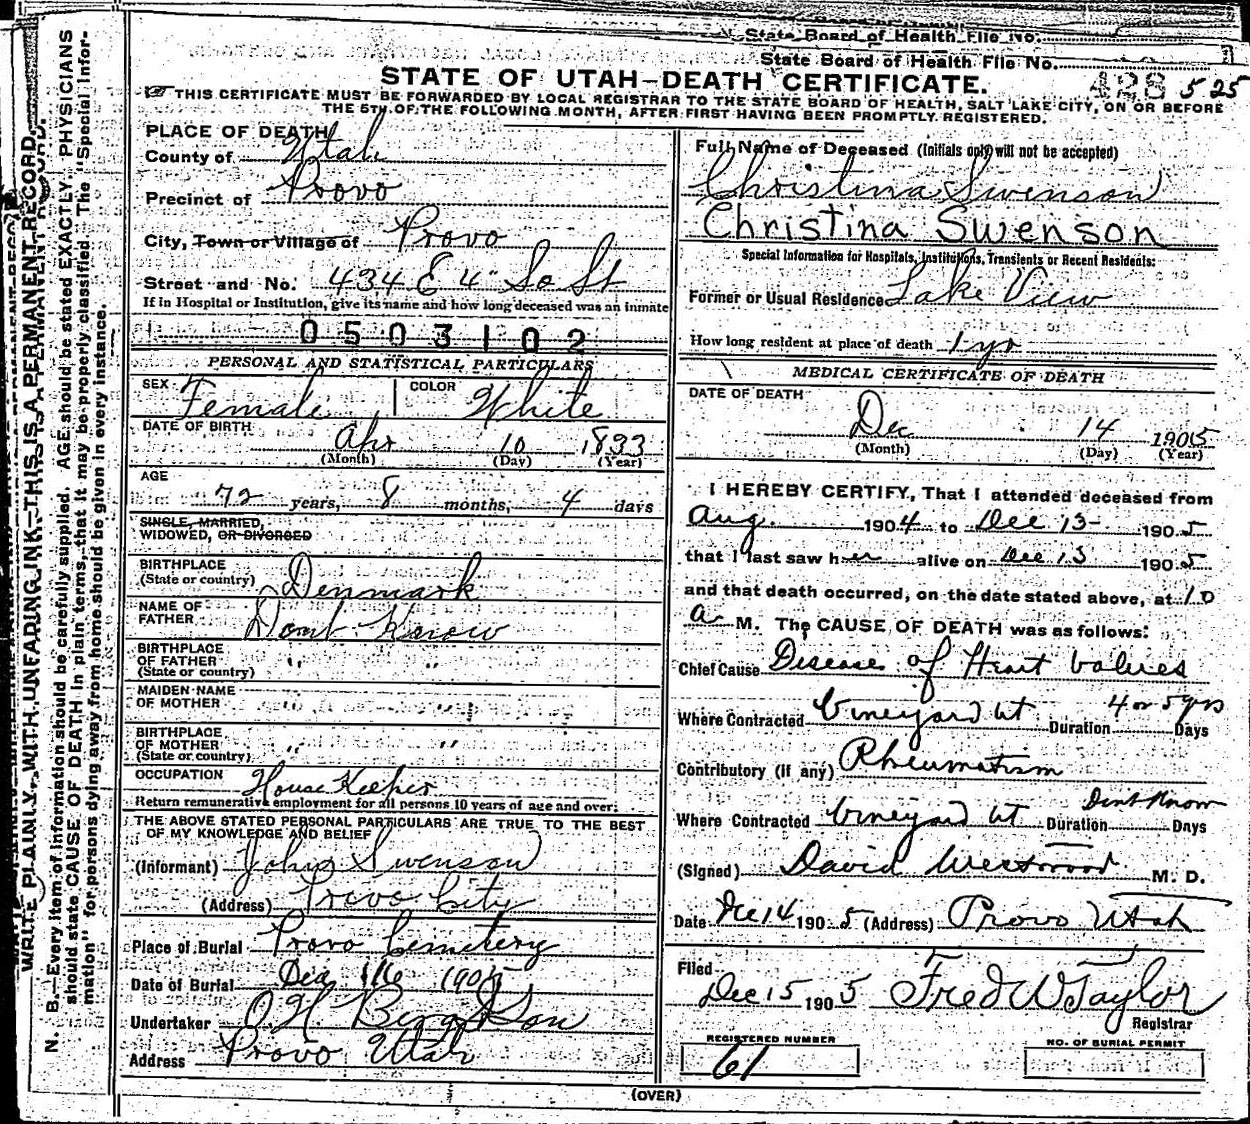 State Board of Health File No.
State Board of Health File No. 428 525
STATE OF UTAH—DEATH CERTIFICATE.
THIS CERTIFICATE MUST BE FORWARDED BY LOCAL REGISTRAR TO THE STATE BOARD OF HEALTH, SALT LAKE CITY, ON OR BEFORE
THE 5TH OF THE FOLLOWING MONTH, AFTER FIRST HAVING BEEN PROMPTLY REGISTERED.
WRITE PLAINLY, WITH UNFADING INK—THIS IS A PERMANENT RECORD.
N. B.—Every item of information should be carefully supplied. AGE should be stated EXACTLY. PHYSICIANS
should state CAUSE OF DEATH in plain terms, that it may be properly classified. The "Special Infor-
mation" for persons dying away from home should be given in every instance.
PLACE OF DEATH
County of Utah
Precinct of Provo
City, Town or Village of Provo
Street and No. 434 E 4" So St
If in Hospital or Institution, give its name and how long deceased was an inmate
0503102
PERSONAL AND STATISTICAL PARTICULARS
SEX Female COLOR White
DATE OF BIRTH Apr 10 1833
(Month) (Day) (Year)
AGE
72 years, 8 months, 4 days
SINGLE, MARRIED,
WIDOWED, OR DIVORCED
BIRTHPLACE
(State or country) Denmark
NAME OF
FATHER Dont Know
BIRTHPLACE
OF FATHER " "
(State or country)
MAIDEN NAME
OF MOTHER " "
BIRTHPLACE
OF MOTHER " "
(State or country)
OCCUPATION House Keeper
Return remunerative employment for all persons 10 years of age and over:
THE ABOVE STATED PERSONAL PARTICULARS ARE TRUE TO THE BEST
OF MY KNOWLEDGE AND BELIEF
(Informant) John Swenson
(Address) Provo City
Place of Burial Provo Cemetery
Date of Burial Dec 16 1905
Undertaker O.H. Berg & Son
Address Provo Utah
Full Name of Deceased (Initials only will not be accepted)
Christina Swenson
Christina Swenson
Special Information for Hospitals, Institutions, Transients or Recent Residents:
Former or Usual Residence Lake View
How long resident at place of death 1 yr
MEDICAL CERTIFICATE OF DEATH
DATE OF DEATH
Dec 14 1905
(Month) (Day) (Year)
I HEREBY CERTIFY, That I attended deceased from
Aug. 1904 to Dec 13 1905
that I last saw her alive on Dec 13 1905
and that death occurred, on the date stated above, at 10
a M. The CAUSE OF DEATH was as follows:
Chief Cause Disease of Heart Valves
Where Contracted Vineyard Ut Duration 4 or 5 yrs Days
Contributory (if any) Rheumatism
Where Contracted Vineyard Ut Duration Dont Know Days
(Signed) David Westwood M. D.
Date Dec 14 1905 (Address) Provo Utah
Filed
Dec 15 1905 Fred W Taylor
Registrar
REGISTERED NUMBER
61
NO. OF BURIAL PERMIT
(OVER)